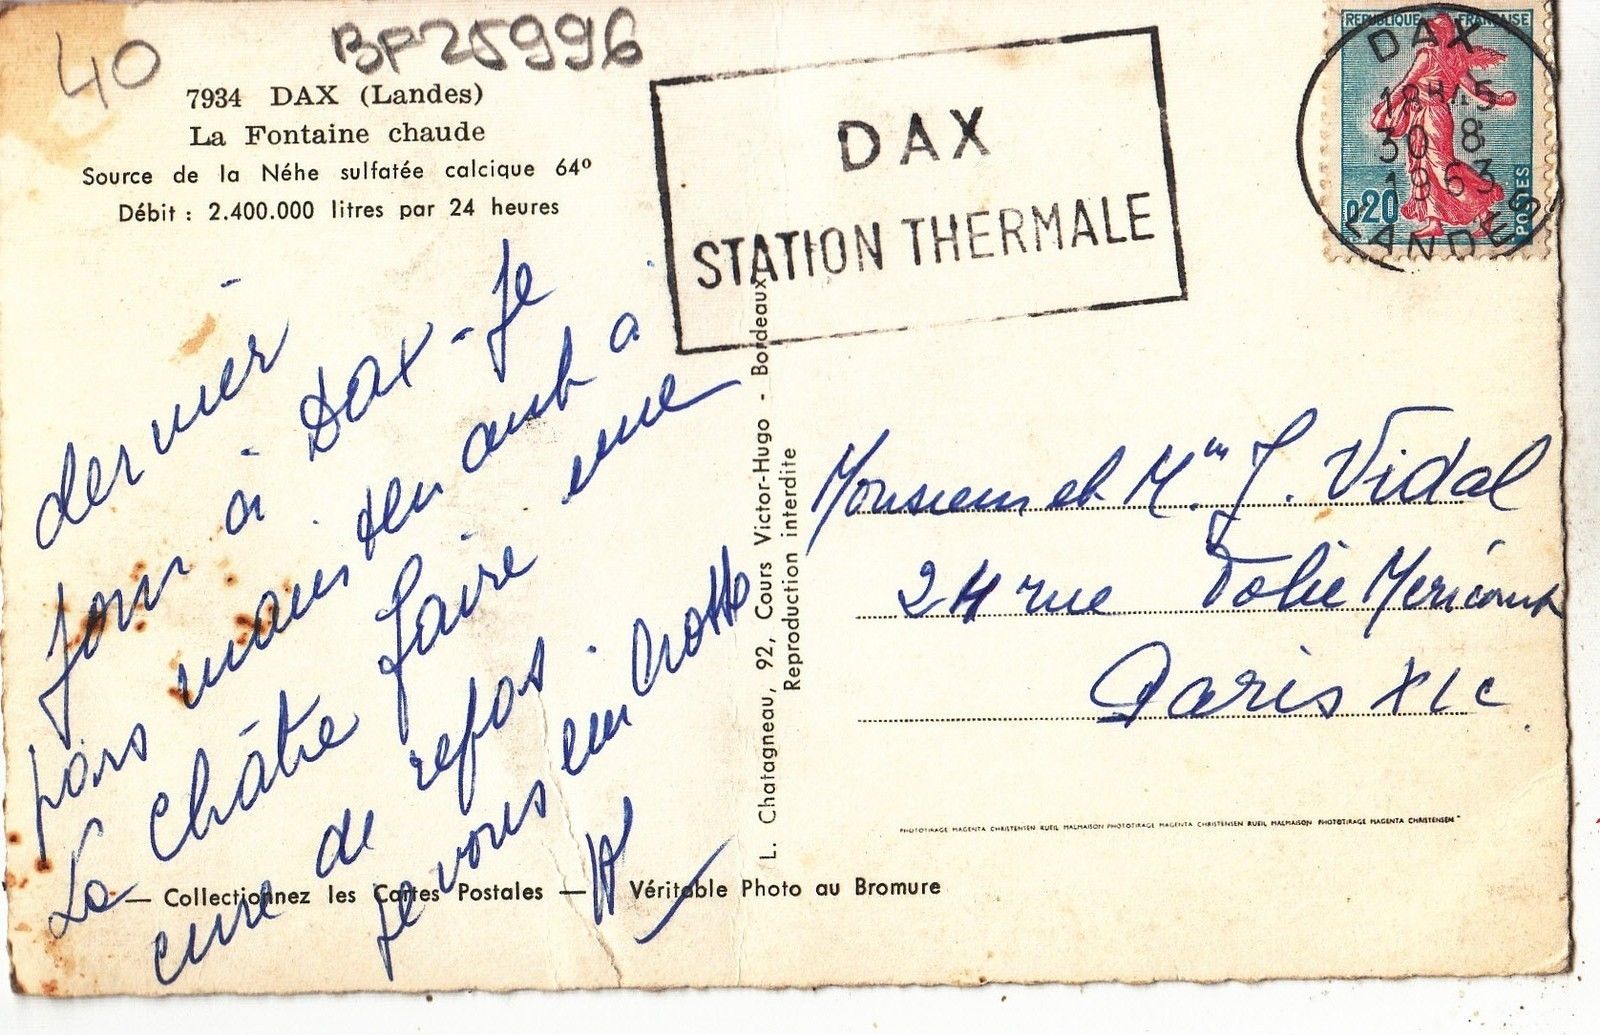 40
BP25996
7934 DAX (Landes)
La Fontaine chaude
Source de la Néhe sulfatée calcique 64º
Débit : 2.400.000 litres par 24 heures
DAX
STATION THERMALE
REPUBLIQUE FRANÇAISE
0,20
POSTES
DAX
18H45
30 8
1963
LANDES
dernier
jour à Dax - Je
pars maintenant à
La Châtre faire une
cure de repos.
Je vous embrasse
L. Chatagneau, 92, Cours Victor-Hugo - Bordeaux
Reproduction interdite
Monsieur et Mme J. Vidal
24 rue Folie Mericourt
Paris XIe
PHOTOTIRAGE MAGENTA CHRISTENSEN RUEIL MALMAISON PHOTOTIRAGE MAGENTA CHRISTENSEN RUEIL MALMAISON PHOTOTIRAGE MAGENTA CHRISTENSEN
— Collectionnez les Cartes Postales — Véritable Photo au Bromure